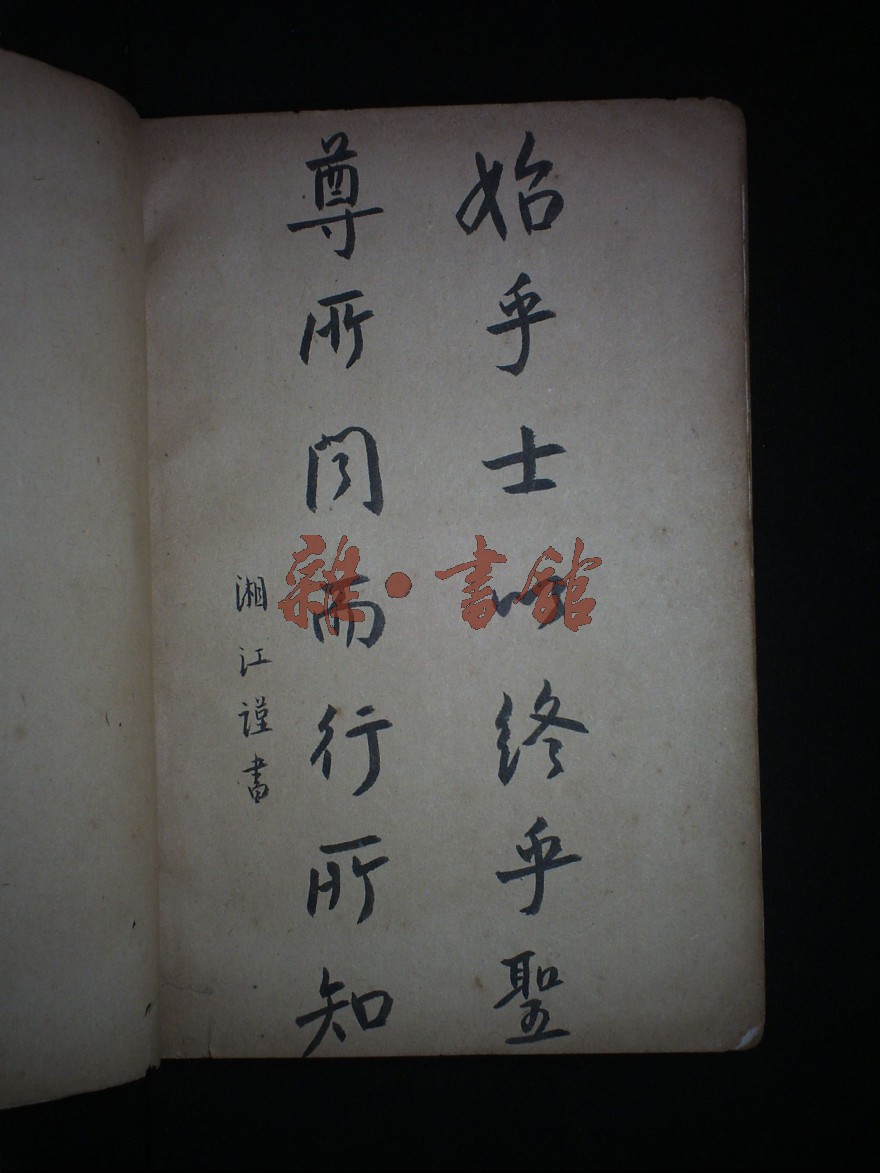 始乎士以終乎聖
尊所聞而行所知
湘江謹書
雜·書館